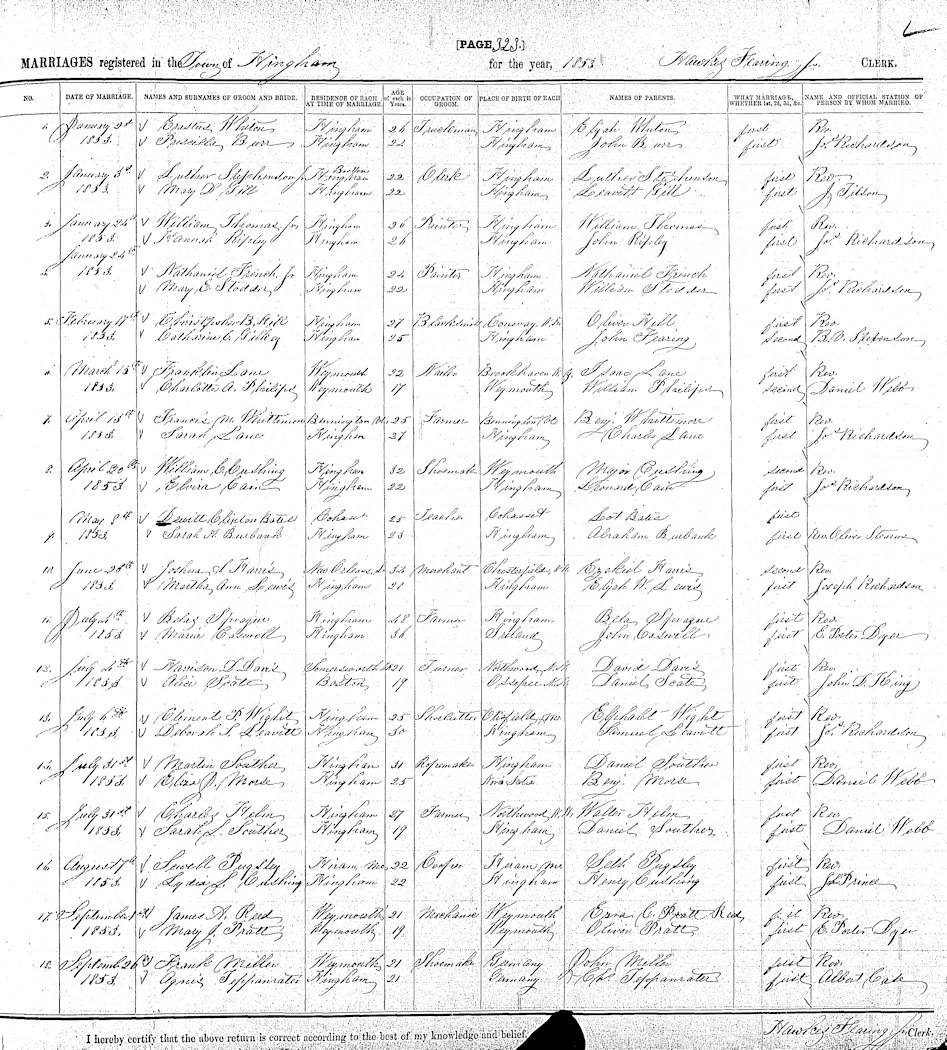 [PAGE 323.]
MARRIAGES registered in the Town of Hingham for the year, 1853 Hawkes Fearing Jr. CLERK.
NO. DATE OF MARRIAGE. NAMES AND SURNAMES OF GROOM AND BRIDE. RESIDENCE OF EACH AT TIME OF MARRIAGE. AGE of each in Years. OCCUPATION OF GROOM. PLACE OF BIRTH OF EACH NAMES OF PARENTS. WHAT MARRIAGE, WHETHER 1st, 2d, 3d, &c. NAME AND OFFICIAL STATION OF PERSON BY WHOM MARRIED.
1. January 2d √ Erastus Whiton Hingham 26 Truckman Hingham Elijah Whiton first Rev.
1853 √ Priscilla Burr Hingham 24 Hingham John Burr first Jos Richardson
2. January 3d √ Luther Stephenson Jr Hingham 22 Clerk Hingham Luther Stephenson first Rev
1853 √ Mary D Gill Hingham 22 Hingham Leavitt Gill first J Tilson
3. January 24th √ William Thomas Jr Hingham 26 Painter Hingham William Thomas first Rev.
1853 √ Hannah Ripley Hingham 26 Hingham John Ripley first Jos Richardson
January 24th
4. 1853 √ Nathaniel French Jr Hingham 24 Painter Hingham Nathaniel French first Rev.
√ Mary E Stodder Hingham 22 Hingham William Stodder first Jos Richardson
5. February 17th √ Christopher B. Hill Hingham 27 Blacksmith Conway, N.H. Oliver Hill first Rev.
1853 √ Catharine C. Hingham 25 Hingham John Fearing second Stevenson
6. March 13th √ Franklin Lane Weymouth 22 Nailer Brookhaven N.Y. Isaac Lane first Rev
1853 √ Charlotte A. Philips Weymouth 17 Weymouth William Philips second Daniel Webb
7. April 15th √ Francis M Whittemore Bennington 25 Farmer Bennington Benj. Whittemore first Rev.
1853 √ Sarah Lane Hingham 27 Hingham Charles Lane first Jos Richardson
8. April 20th √ William C Cushing Hingham 32 Shoemaker Weymouth Major Cushing second Rev.
1853 √ Elvira Cain Hingham 22 Hingham Leonard Cain first Jos Richardson
May 8th √ Dewitt Clinton Bates Cohasset 25 Teacher Cohasset Lot Bates first
9. 1853 √ Sarah A. Burbank Hingham 23 Hingham Abraham Burbank first Rev. Oliver Stearns
10. June 28th √ Joshua Harris New Orleans 34 Merchant Chesterfield Ezekiel Harris second Rev.
1853 √ Martha Ann Lewis Hingham 28 Hingham Elijah W. Lewis first Joseph Richardson
11. July 4th √ Bela Sprague Hingham 48 Farmer Hingham Bela Sprague first Rev.
1853 √ Maria Hingham 36 Ireland John first E Porter Dyer
12. July 4th √ Harrison D. Davis Somersworth 21 Turner Northwood, N.H. David Davis first Rev.
1853 √ Alice Boston 19 Ossipee N.H. Daniel first John F. King
13. July 6th √ Clement P. Wight Hingham 25 Shoecutter Otisfield, Me. Wight first Rev.
1853 √ Deborah S. Leavitt Hingham 30 Hingham Samuel Leavitt first Jos Richardson
14. July 31st √ Martin Souther Hingham 31 Ropemaker Hingham Daniel Souther first Rev.
1853 √ Eliza J. Morse Hingham 25 Nova Scotia Benj. Morse first Daniel Webb
15. July 31st √ Charles Helm Hingham 27 Farmer Northwood, N.H. Walter Helm first Rev.
1853 √ Sarah L. Souther Hingham 19 Hingham Daniel Souther first Daniel Webb
16. August 7th √ Sewell Pugsley Hiram Me, 22 Cooper Hiram Me. Seth Pugsley first Rev.
1853 √ Lydia L Cushing Hingham 22 Hingham Henry Cushing first Prince
17. September 1st √ James A. Reed Weymouth 21 Mechanic Weymouth Ezra C. Pratt Reed first Rev.
1853 √ Mary J Pratt Weymouth 19 Weymouth Oliver Pratt first E Porter Dyer
18. September √ Frank Miller Weymouth 21 Shoemaker Germany John Miller first Rev.
1853 √ Agnes Teppanrater Hingham 21 Germany Teppanrater first Albert
I hereby certify that the above return is correct according to the best of my knowledge and belief. Hawkes Fearing Jr. Clerk.